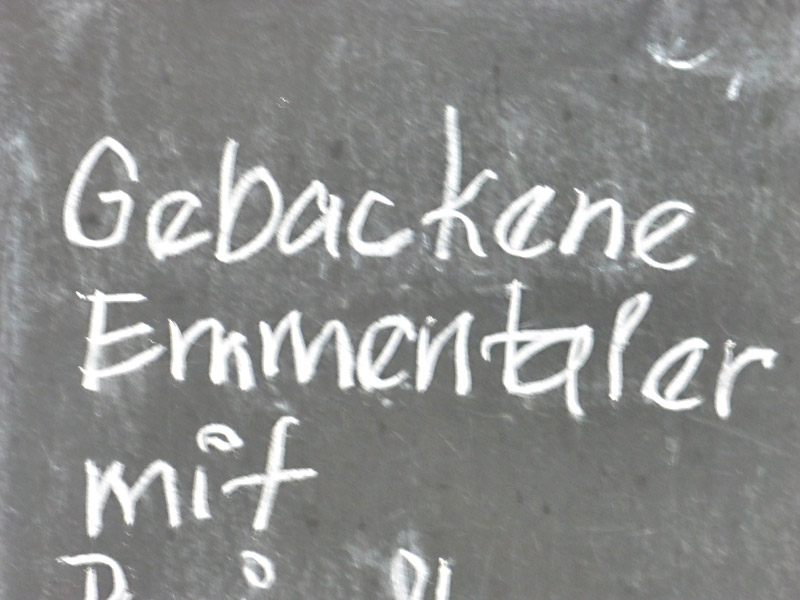 Gebackene
Emmentaler
mit